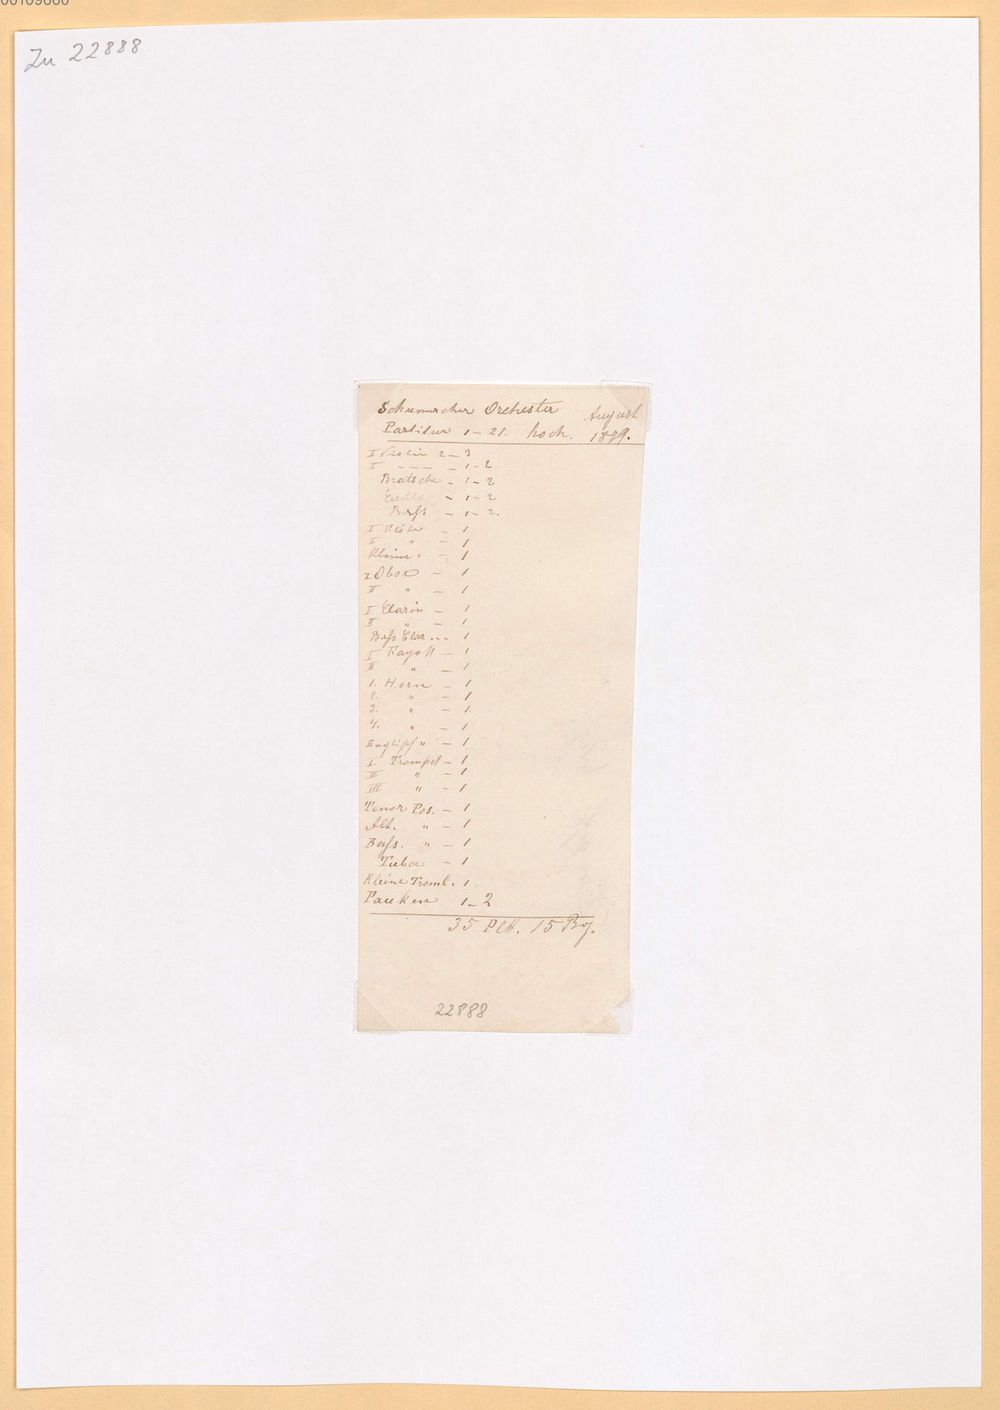 00109660
Zu 22888
Schumacher Orchester August
Partitur 1–21. hoch. 1899.
I Violin 2–3
II –––– – 1–2
Bratsche – 1–2
Cello – 1–2
Bass – 1–2.
I Flöte – 1
II " – 1
Kleine " – 1
I Oboe – 1
II " – 1
I Clarin – 1
II " – 1
Bass Clar... 1
I Fagott – 1
II " – 1
1. Horn – 1
2. " – 1
3. " – 1
4. " – 1
Englisch " – 1
I Trompet – 1
II " – 1
III " – 1
Tenor Pos. – 1
Alt. " – 1
Bass. " – 1
Tuba – 1
Kleine Troml. 1
Pauken 1–2
35 Plt. 15 Bog.
22888